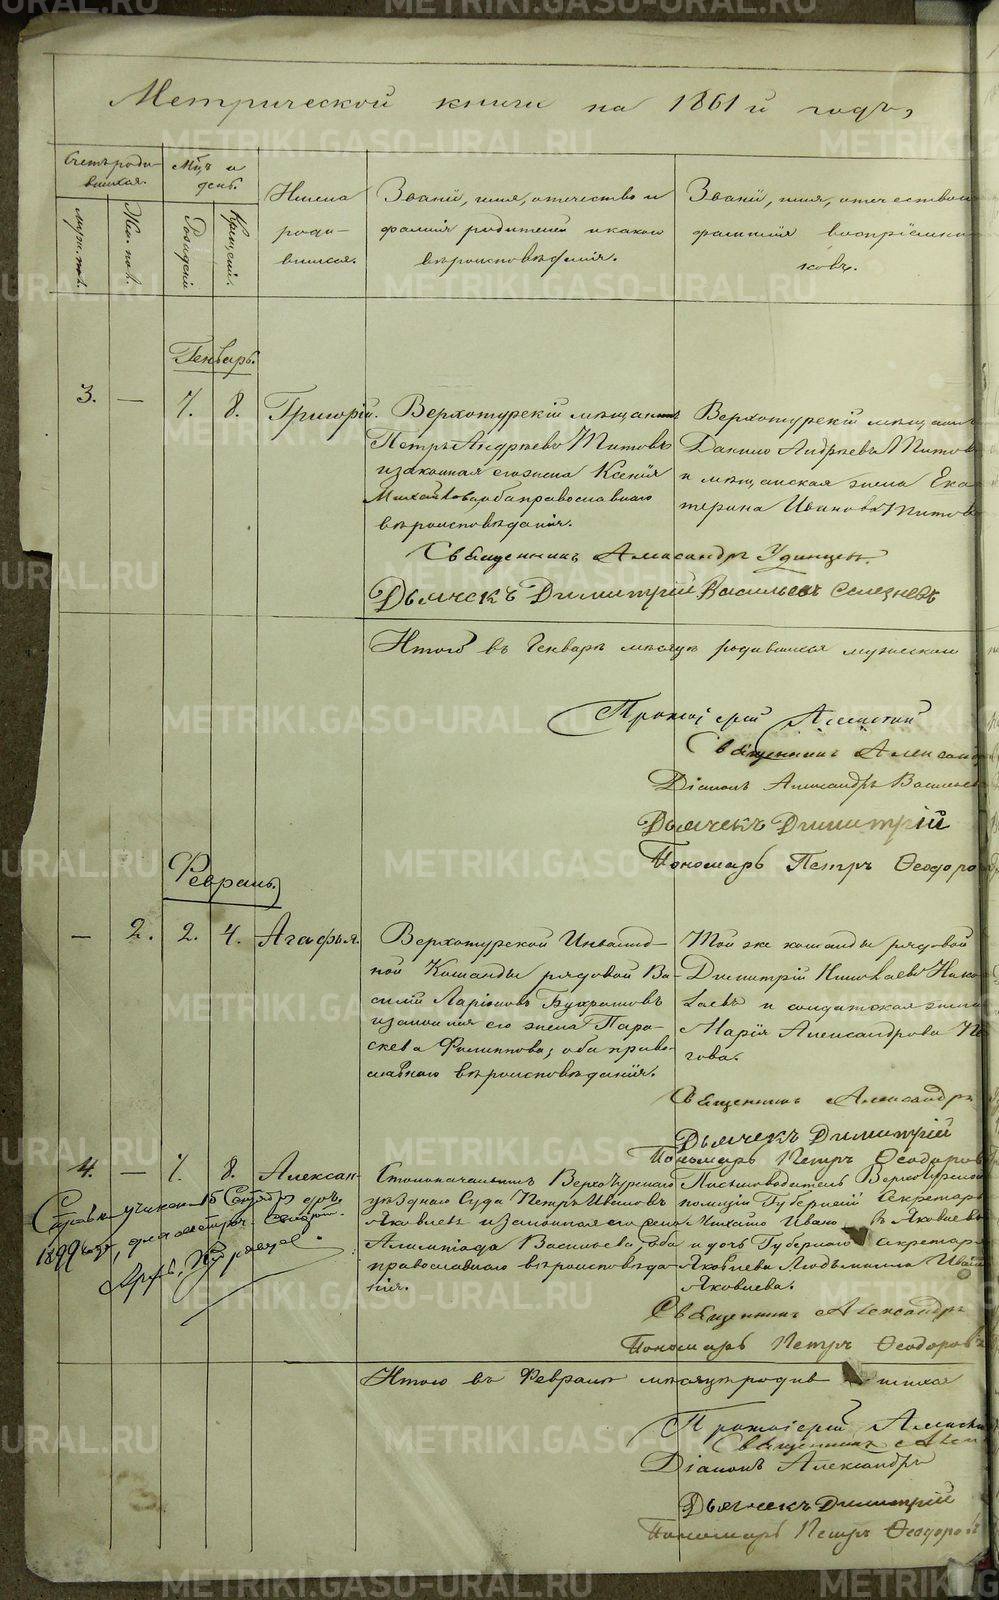 Метрической книги на 1861й годъ,
Счетъ роди-
вшихся.
Мцъ и
день.
Имена
роди-
вшихся.
Званіе, имя, отчество и
фамилія родителей и какого
вѣроисповѣданія.
Званіе, имя, отчество и
фамилія воспріемни-
ковъ.
муж. пол.
Жен. пол.
Рожденія
Крещенія.
Генварь.
3. — 7. 8. Григорій.
Верхотурскій мѣщанинъ
Петръ Андреевъ Титовъ
и законная его жена Ксенія
Михайлова, оба православнаго
вѣроисповѣданія.
Верхотурскій мѣщанин
Данило Андреевъ Титов
и мѣщанская жена Ека
терина Иванова Титов
Священникъ Александръ Удинцев.
Дьячекъ Димитрій Васильевъ Селезневъ
Итого въ Генварѣ мѣсяцѣ родившихся мужескаго
Протоіерей
Священникъ Александ
Діаконъ Александръ Васильев
Дьячекъ Димитрій
Пономарь Петръ Ѳеодоро
Февраль.
— 2. 2. 4. Агафья.
Верхотурской Инвалид-
ной Команды рядовой Ва-
силій Ларіоновъ
и законная его жена Пара-
скева Филиппова; оба право-
славнаго вѣроисповѣданія.
Той же команды рядовой
Димитрій Николаевъ Нико
лаевъ и солдатская жена
Марія Александрова
гова.
Священникъ Александръ
Дьячекъ Димитрій
Пономарь Петръ Ѳеодоров
4. — 7. 8. Алексан-
Столоначальникъ Верхотурскаго
уѣзднаго Суда Петръ Ивановъ
Яковлевъ и законная его жена
Васильева, оба
православнаго вѣроисповѣда-
нія.
Письмоводитель Верхотурской
полиціи Губернскій Секретарь
Михайло Ивано в Яковлевъ
и дочь Губернскаго Секретаря
Яковлева Людмилла Иван
Яковлева.
Справка учинена 15
1899 года,
Священникъ Александръ
Пономарь Петръ Ѳеодоровъ
Итого въ Февралѣ мѣсяцѣ родив шихся
Протоіерей
Священникъ Алек
Діаконъ Александръ
Дьячекъ Димитрій
Пономарь Петръ Ѳеодоров
METRIKI.GASO-URAL.RU